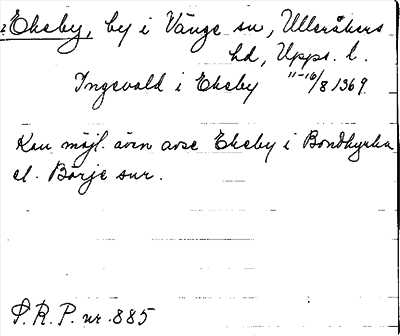 ? Ekeby, by i Vänge sn, Ulleråkers
hd, Upps. l.
Ingevald i Ekeby 11-16/8 1369
Kan möjl. även avse Ekeby i Bondkyrka
el. Börje snr.
P.R.P. nr 885